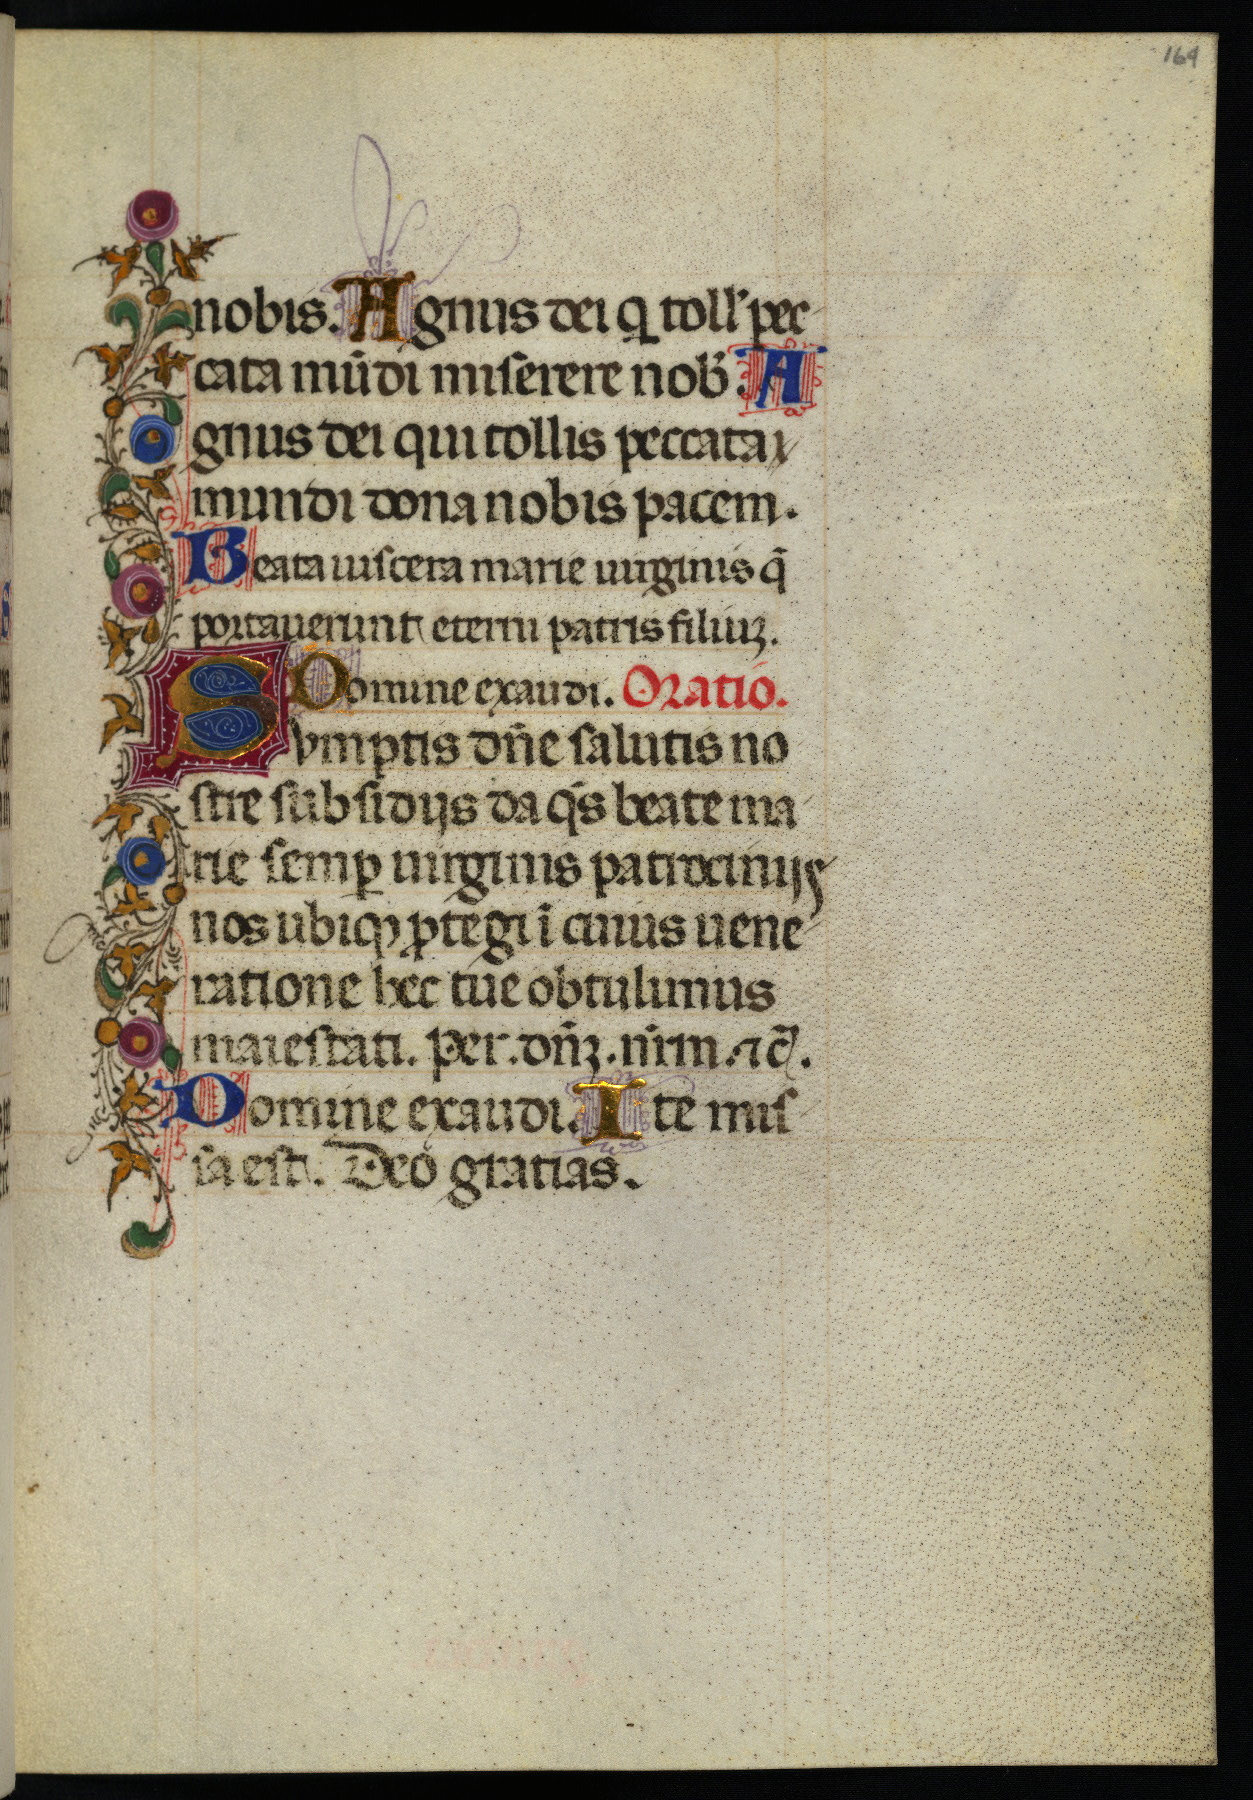 169
nobis. Agnus dei q̄ toll' pec
cata mūdi miserere nob̄. A
gnus dei qui tollis peccata
mundi dona nobis pacem.
Beata uiscera marie uirginis q̄
portauerunt eterni patris filiuʒ.
Domine exaudi. Oratio.
Sumptis dn̄e salutis no
stre subsidijs da q̄s beate ma
rie semꝑ uirginis patrocinijs
nos ubiqꝫ ꝓtegi ī cuius uene
ratione hec tue obtulimus
maiestati. Per. dn̄ʒ. nr̄m. ⁊c̄.
Domine exaudi. Ite mis
sa est. Deo gratias.